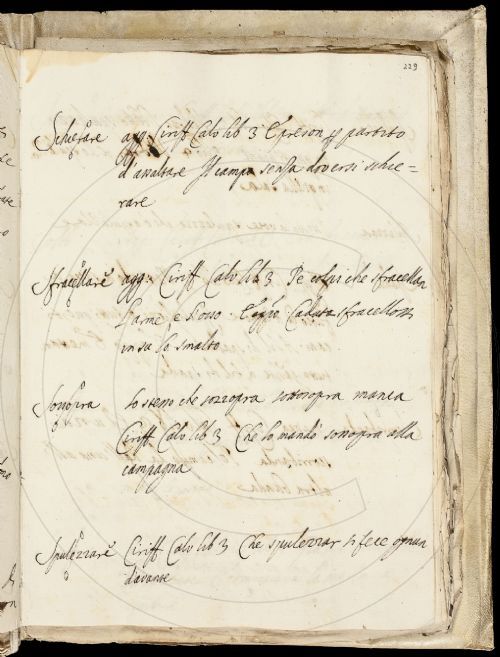 229
Schierare agg: Ciriff Calv lib 3 E preson p partito
d'assaltare Il campo senza doversi schie=
rare
Sfracellare agg: Ciriff Calv lib 3 De colpi che sfracellan
l'arme e l'osso E appo Caduta sfracellossi
in su lo smalto
Sossopra lo stesso che sozzopra sottosopra manca
Ciriff Calv lib 3 Che lo mandò sossopra alla
campagna
Spulezzare Ciriff Calv lib 3 Che spulezzar si fece ognun
davante